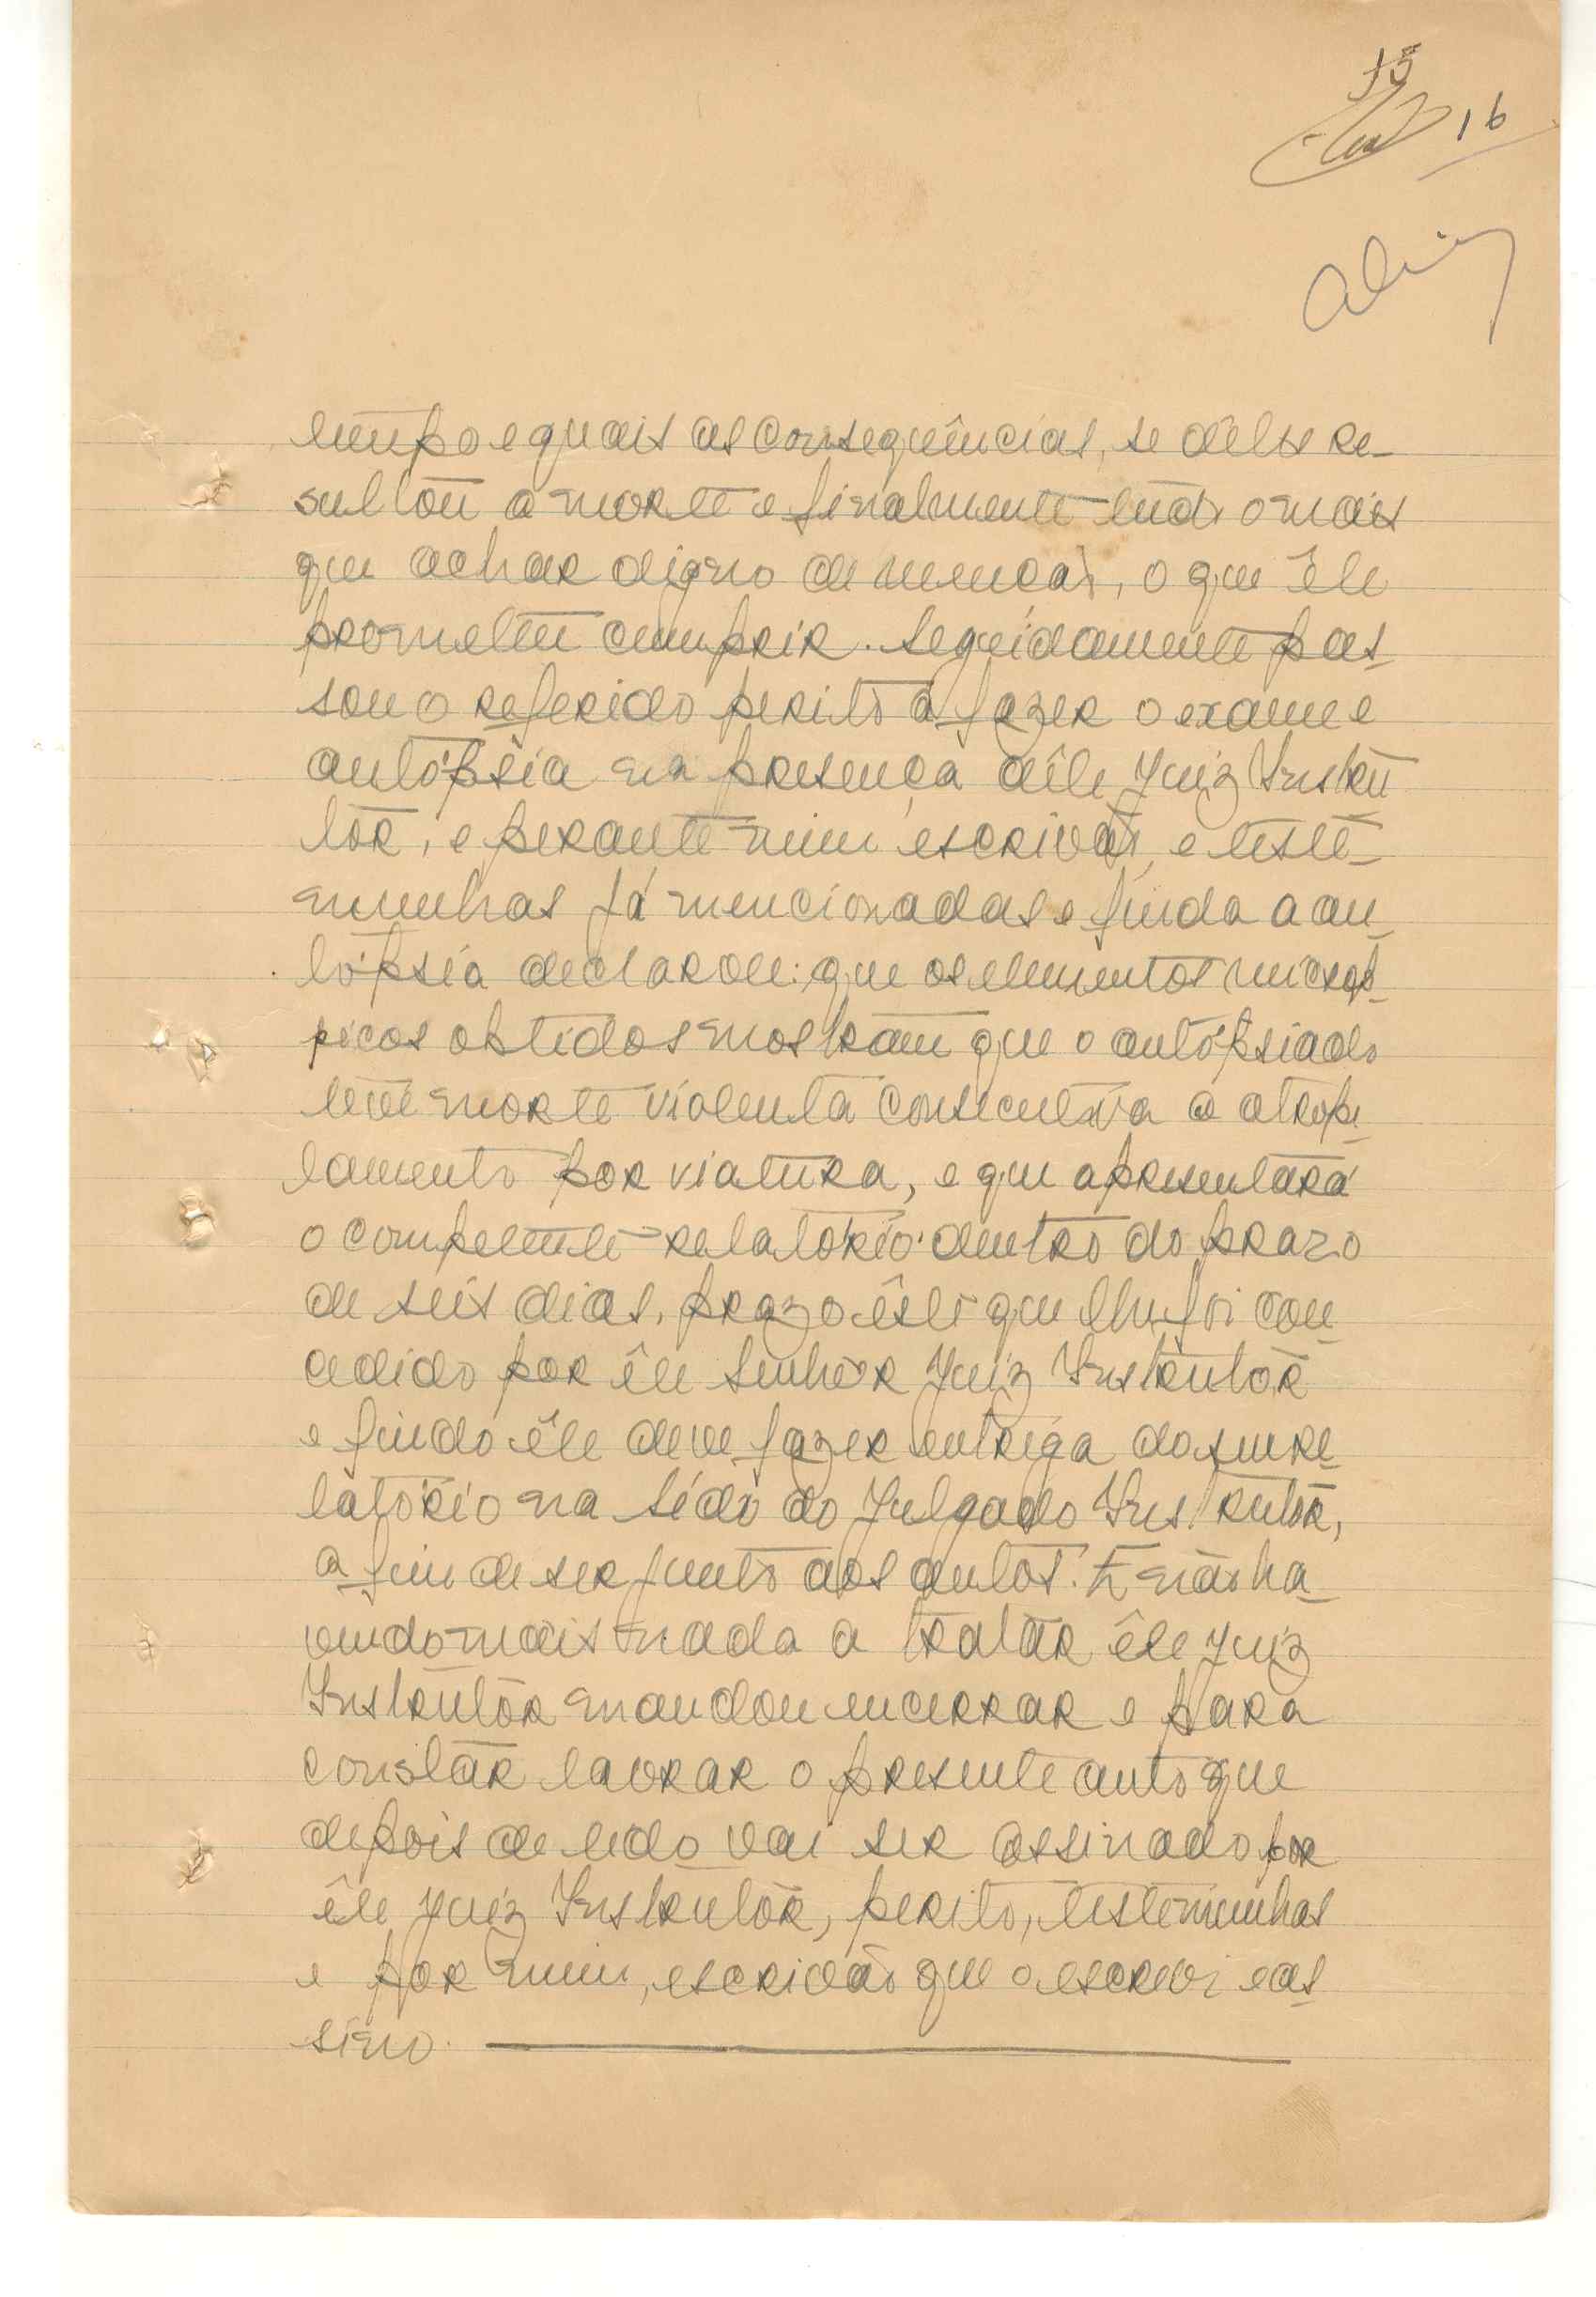 15
16
tempo e quais as consequências, se déles re-
sultou a morte e finalmente tudo o mais
que achar digno de menção, o que êle
prometeu cumprir. Seguidamente pas-
sou o referido perito a fazer o exame e
autópsia na presença dêle Juiz Instru
tôr, e perante mim escrivão, e teste-
munhas já mencionadas e finda a au-
tópsia declarou: que os elementos
picos obtidos mostram que o autópsiado
teve morte violenta consecutiva a atrope-
lamento por viatura, e que apresentará
o competente relatório dentro do prazo
de seis dias, prazo êste que lhe foi con-
cedido por êle Senhor Juiz Instrutôr
e findo êle deve fazer entrega do seu re-
latório na séde do Julgado Instrutôr,
a fim de ser junto aos autos. E não ha-
vendo mais nada a tratar êle Juiz
Instrutôr mandou encerrar e para
constar lavrar o presente auto que
depois de lido vai ser assinado por
êle Juiz Instrutôr, perito, testemunhas
e por mim, escrivão que o escrevi e as-
sino.